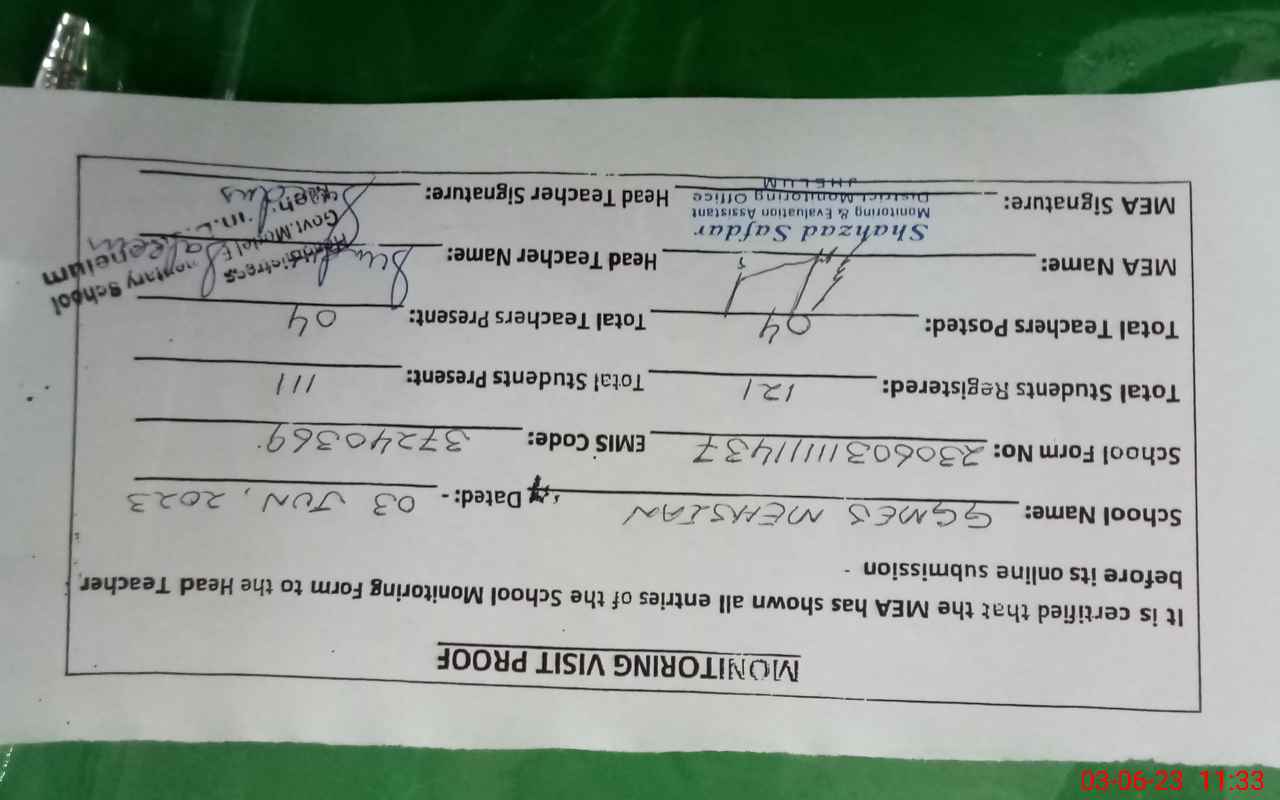 MONITORING VISIT PROOF
It is certified that the MEA has shown all entries of the School Monitoring Form to the Head Teacher
before its online submission -
School Name: GGMES MEHSIAN Dated: - 03 JUN, 2023
School Form No: EMIS Code: 37240369
Total Students Registered: 121 Total Students Present: 111
Total Teachers Posted: 04 Total Teachers Present: 04
MEA Name: Head Teacher Name:
Shahzad Safdar
Monitoring & Evaluation Assistant
District Monitoring Office
JHELUM
Headmistress
Govt. Model Elementary School
MEA Signature: Head Teacher Signature:
03-06-23 11:33